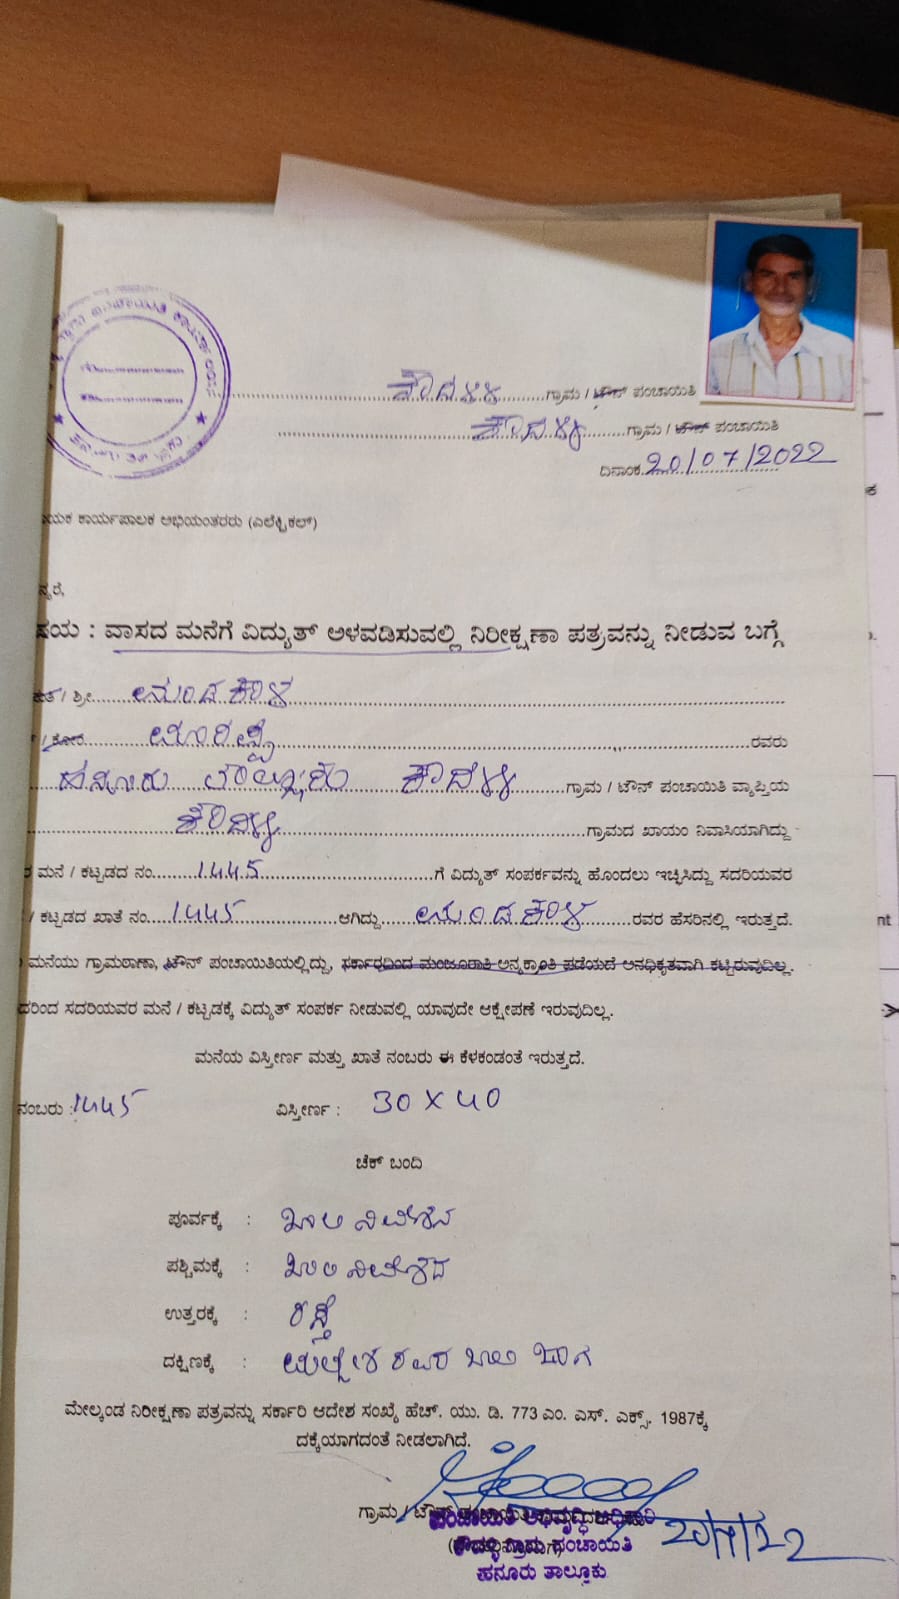 ಕೌದಳ್ಳಿ ಗ್ರಾಮ / ಟೌನ್ ಪಂಚಾಯಿತಿ
ಕೌದಳ್ಳಿ ಗ್ರಾಮ / ಟೌನ್ ಪಂಚಾಯಿತಿ
ದಿನಾಂಕ 20/07/2022
ಯಕ ಕಾರ್ಯಪಾಲಕ ಅಭಿಯಂತರರು (ಎಲೆಕ್ಟ್ರಿಕಲ್)
ನ್ಯರೆ,
ಷಯ : ವಾಸದ ಮನೆಗೆ ವಿದ್ಯುತ್ ಅಳವಡಿಸುವಲ್ಲಿ ನಿರೀಕ್ಷಣಾ ಪತ್ರವನ್ನು ನೀಡುವ ಬಗ್ಗೆ
/ ಶ್ರೀ
/ ಕೋರಂ ರವರು
ಹನೂರು ತಾಲ್ಲೂಕು ಕೌದಳ್ಳಿ ಗ್ರಾಮ / ಟೌನ್ ಪಂಚಾಯಿತಿ ವ್ಯಾಪ್ತಿಯ
ಕೌದಳ್ಳಿ ಗ್ರಾಮದ ಖಾಯಂ ನಿವಾಸಿಯಾಗಿದ್ದು
ರ ಮನೆ / ಕಟ್ಟಡದ ನಂ. 1445 ಗೆ ವಿದ್ಯುತ್ ಸಂಪರ್ಕವನ್ನು ಹೊಂದಲು ಇಚ್ಛಿಸಿದ್ದು ಸದರಿಯವರ
/ ಕಟ್ಟಡದ ಖಾತೆ ನಂ. 1445 ಆಗಿದ್ದು ರವರ ಹೆಸರಿನಲ್ಲಿ ಇರುತ್ತದೆ.
ಮನೆಯು ಗ್ರಾಮಠಾಣಾ, ಟೌನ್ ಪಂಚಾಯಿತಿಯಲ್ಲಿದ್ದು, ಸರ್ಕಾರದಿಂದ ಮಂಜೂರಾತಿ ಅನ್ಯಕ್ರಾಂತಿ ಪಡೆಯದೆ ಅನಧಿಕೃತವಾಗಿ ಕಟ್ಟಿರುವುದಿಲ್ಲ.
ದರಿಂದ ಸದರಿಯವರ ಮನೆ / ಕಟ್ಟಡಕ್ಕೆ ವಿದ್ಯುತ್ ಸಂಪರ್ಕ ನೀಡುವಲ್ಲಿ ಯಾವುದೇ ಆಕ್ಷೇಪಣೆ ಇರುವುದಿಲ್ಲ.
ಮನೆಯ ವಿಸ್ತೀರ್ಣ ಮತ್ತು ಖಾತೆ ನಂಬರು ಈ ಕೆಳಕಂಡಂತೆ ಇರುತ್ತದೆ.
ನಂಬರು : 1445 ವಿಸ್ತೀರ್ಣ : 30 X 40
ಚೆಕ್ ಬಂದಿ
ಪೂರ್ವಕ್ಕೆ : ಖಾಲಿ ನಿವೇಶನ
ಪಶ್ಚಿಮಕ್ಕೆ : ಖಾಲಿ ನಿವೇಶನ
ಉತ್ತರಕ್ಕೆ : ರಸ್ತೆ
ದಕ್ಷಿಣಕ್ಕೆ : ರವರ ಖಾಲಿ ಜಾಗ
ಮೇಲ್ಕಂಡ ನಿರೀಕ್ಷಣಾ ಪತ್ರವನ್ನು ಸರ್ಕಾರಿ ಆದೇಶ ಸಂಖ್ಯೆ ಹೆಚ್. ಯು. ಡಿ. 773 ಎಂ. ಎಸ್. ಎಕ್ಸ್. 1987ಕ್ಕೆ
ದಕ್ಕೆಯಾಗದಂತೆ ನೀಡಲಾಗಿದೆ.
ಗ್ರಾಮ / ಟೌನ್
ಪಂಚಾಯಿತಿ ಅಭಿವೃದ್ಧಿ ಅಧಿಕಾರಿ
ಕೌದಳ್ಳಿ ಗ್ರಾಮ ಪಂಚಾಯಿತಿ
ಹನೂರು ತಾಲ್ಲೂಕು